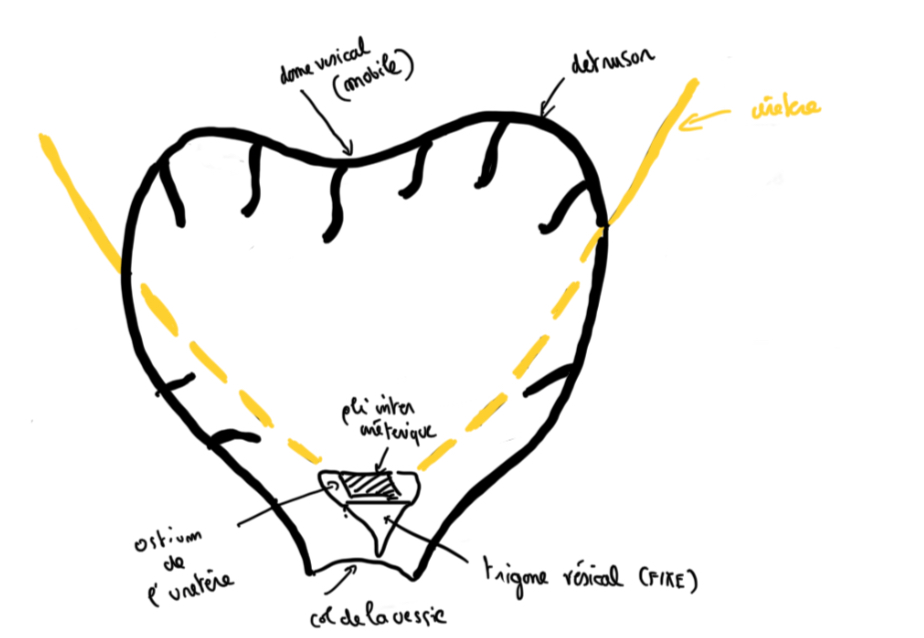 dome vesical
(mobile)
detrusor
uretère
pli inter
urétérique
ostium
de
l'uretère
trigone vésical (FIXE)
col de la vessie